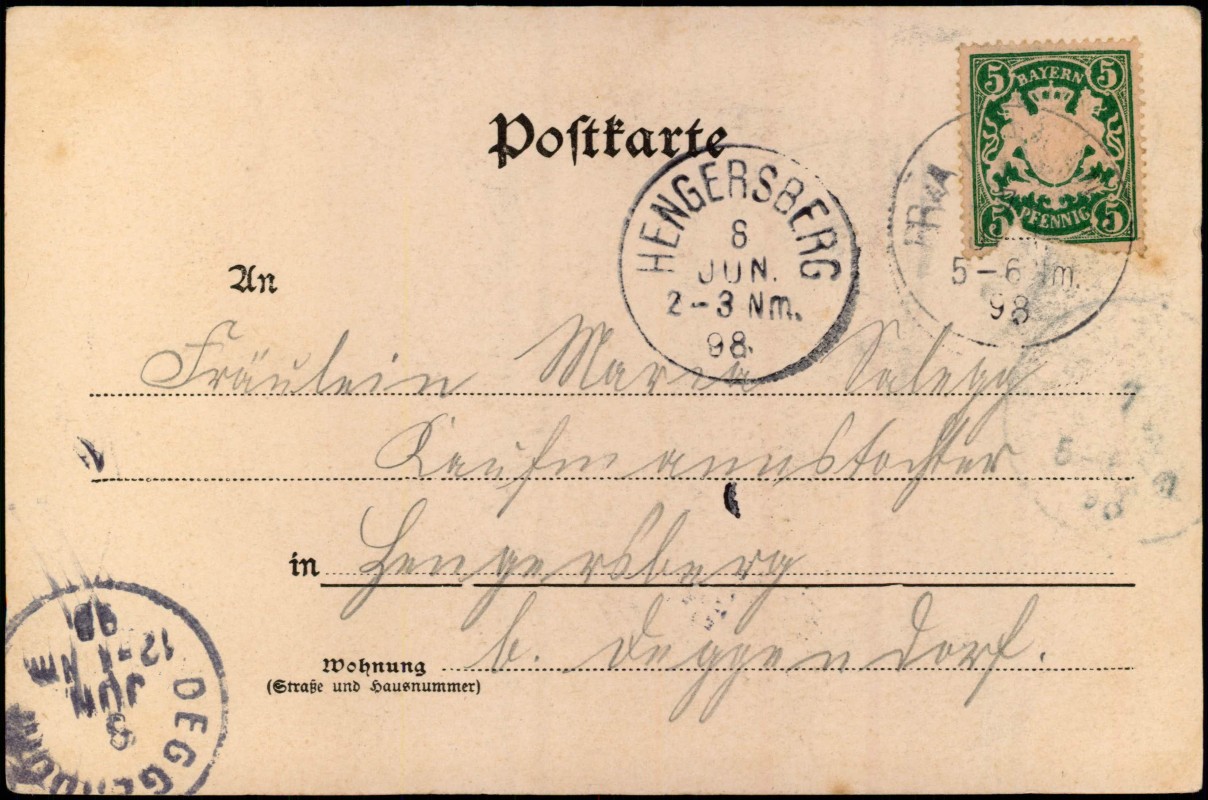 Postkarte
5 BAYERN 5
5 PFENNIG 5
HENGERSBERG
8
JUN.
2-3 Nm.
98.
5-6 Nm.
98
An
Fräulein Maria
Kaufmannstochter
in Hengersberg
b. Deggendorf.
Wohnung
(Straße und Hausnummer)
7
5-
98
DEGGENDORF
8
JUN
12-1 NM
98